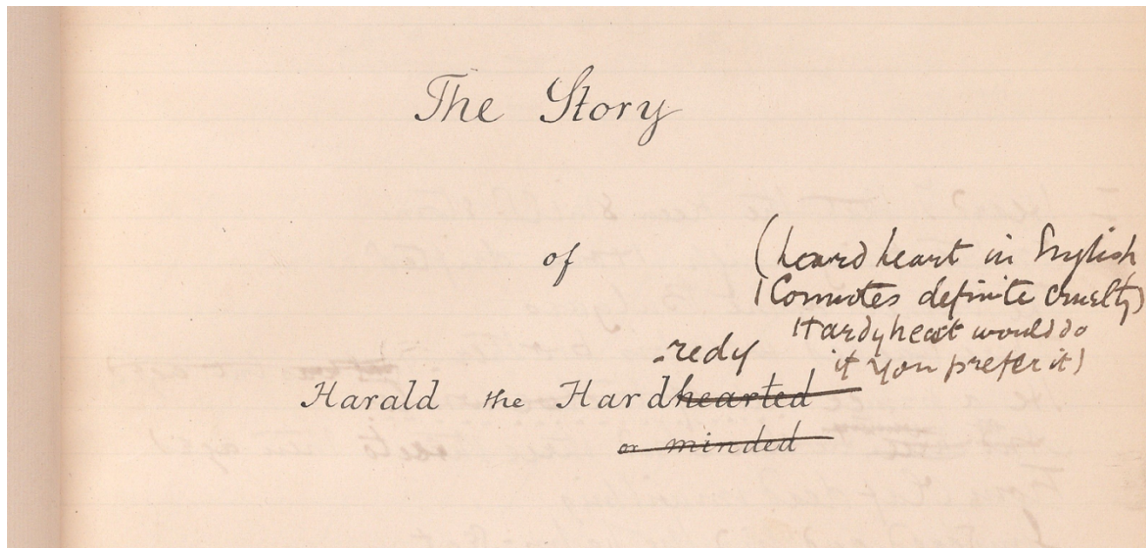 The Story
of
(hard heart in English
Connotes definite cruelty)
Hardyheart would do
if you prefer it)
-redy
Harald the Hardhearted
or minded